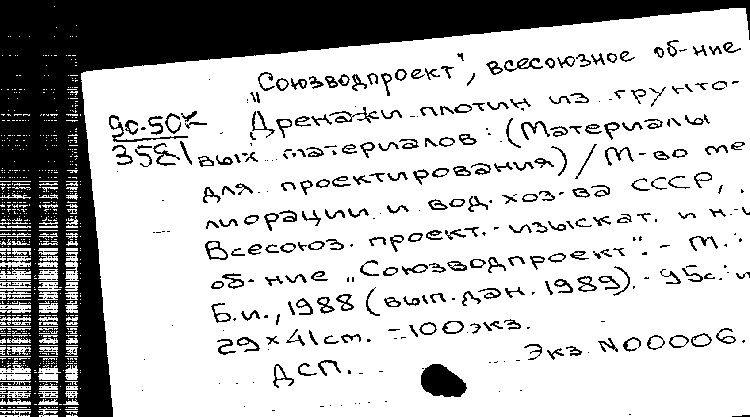 „Союзводпроект", всесоюзное об-ние
90-50К Дренажи плотин из грунто-
3581 вых материалов: (Материалы
для проектирования) / М-во ме
лиорации и вод. хоз-ва СССР,
Всесоюз. проект.-изыскат. и н.-и
об-ние „Союзводпроект". - М.:
Б.и., 1988 (вып.дан. 1989). - 95с.: и
29×41cm. - 100экз.
ДСП. Экз N00006.